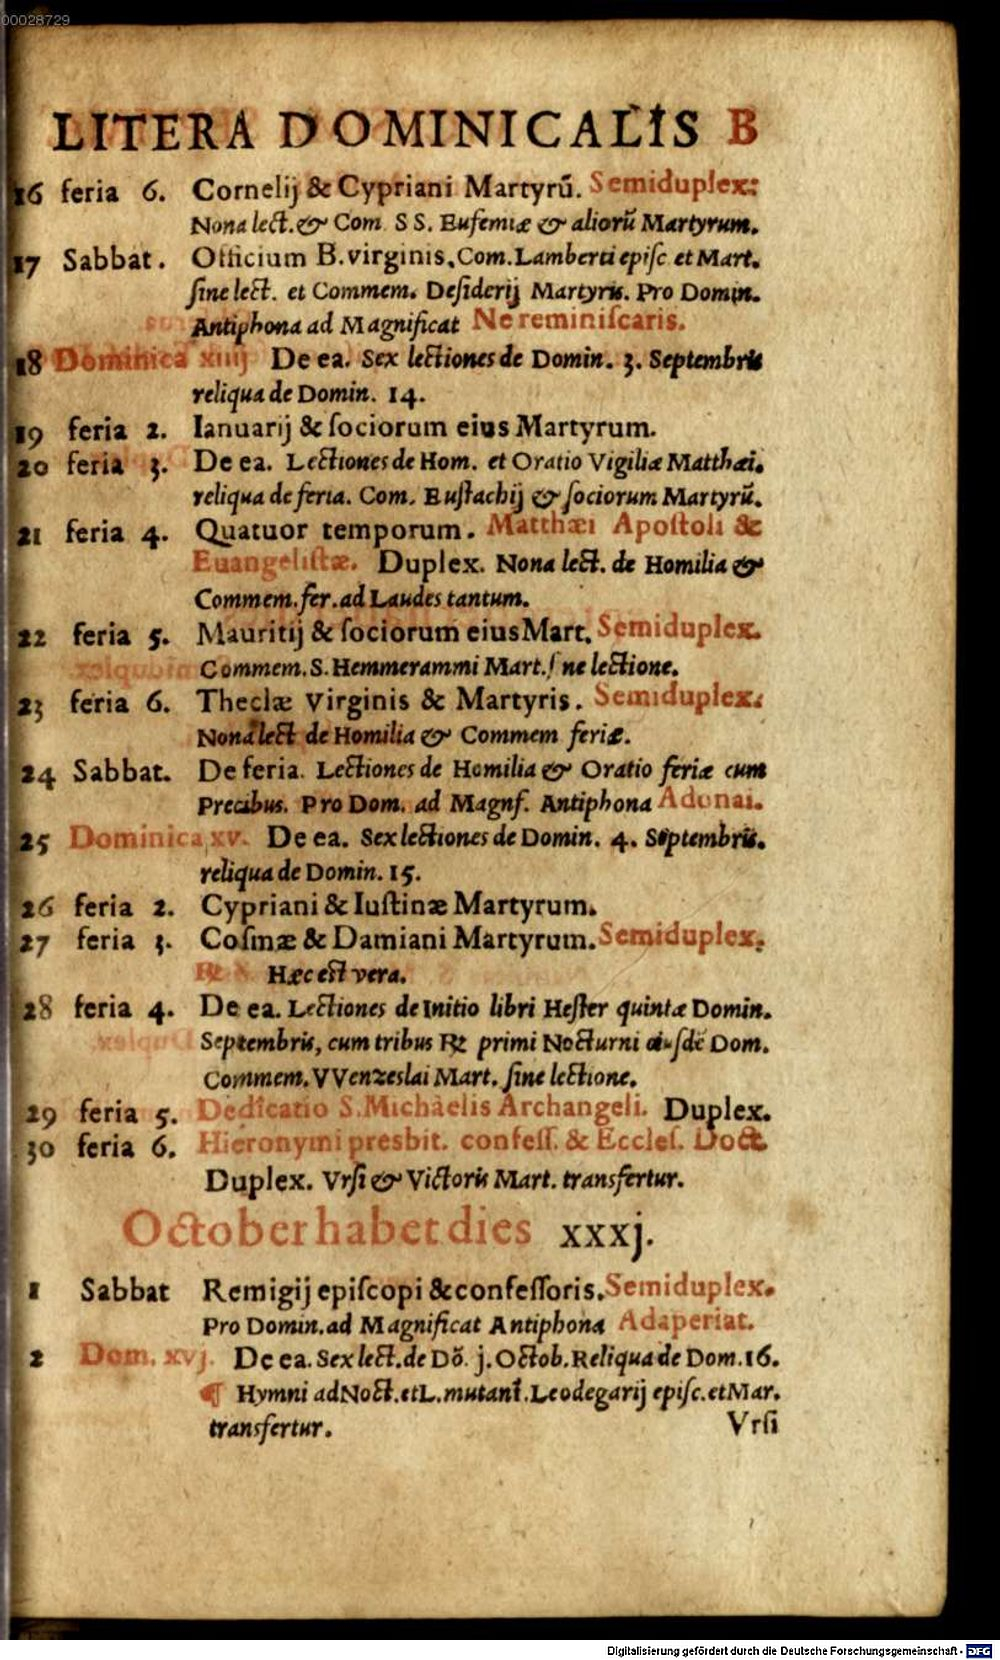 00028729
LITERA DOMINICALIS B
16 feria 6. Cornelij & Cypriani Martyrū. Semiduplex:
Nona lect. & Com. SS. Eufemiæ & aliorū Martyrum.
17 Sabbat. Officium B. virginis. Com. Lamberti episc et Mart.
sine lect. et Commem. Desiderij Martyris. Pro Domin.
Antiphona ad Magnificat Ne reminiscaris.
18 Dominica xiiij De ea. Sex lectiones de Domin. 3. Septembris
reliqua de Domin. 14.
19 feria 2. Ianuarij & sociorum eius Martyrum.
20 feria 3. De ea. Lectiones de Hom. et Oratio Vigiliæ Matthæi.
reliqua de feria. Com. Eustachij & sociorum Martyrū.
21 feria 4. Quatuor temporum. Matthæi Apostoli &
Euangelistæ. Duplex. Nona lect. de Homilia &
Commem. fer. ad Laudes tantum.
22 feria 5. Mauritij & sociorum eius Mart. Semiduplex.
Commem. S. Hemmerammi Mart. sine lectione.
23 feria 6. Theclæ Virginis & Martyris. Semiduplex.
Nona lect de Homilia & Commem feriæ.
24 Sabbat. De feria. Lectiones de Homilia & Oratio feriæ cum
Precibus. Pro Dom. ad Magnf. Antiphona Adonai.
25 Dominica xv. De ea. Sex lectiones de Domin. 4. Septembris.
reliqua de Domin. 15.
26 feria 2. Cypriani & Iustinæ Martyrum.
27 feria 3. Cosmæ & Damiani Martyrum. Semiduplex.
℞ 8 Hæc est vera.
28 feria 4. De ea. Lectiones de Initio libri Hester quintæ Domin.
Septembris, cum tribus ℞ primi Nocturni eiusdē Dom.
Commem. VVenzeslai Mart. sine lectione.
29 feria 5. Dedicatio S. Michaelis Archangeli. Duplex.
30 feria 6. Hieronymi presbit. confess. & Eccles. Doct.
Duplex. Vrsi & Victoris Mart. transfertur.
October habet dies xxxj.
1 Sabbat Remigij episcopi & confessoris. Semiduplex.
Pro Domin. ad Magnificat Antiphona Adaperiat.
2 Dom. xvj. De ea. Sex lect. de Dō. j. Octob. Reliqua de Dom. 16.
¶ Hymni ad Noct. et L. mutant. Leodegarij episc. et Mar.
transfertur. Vrsi
Digitalisierung gefördert durch die Deutsche Forschungsgemeinschaft - DFG